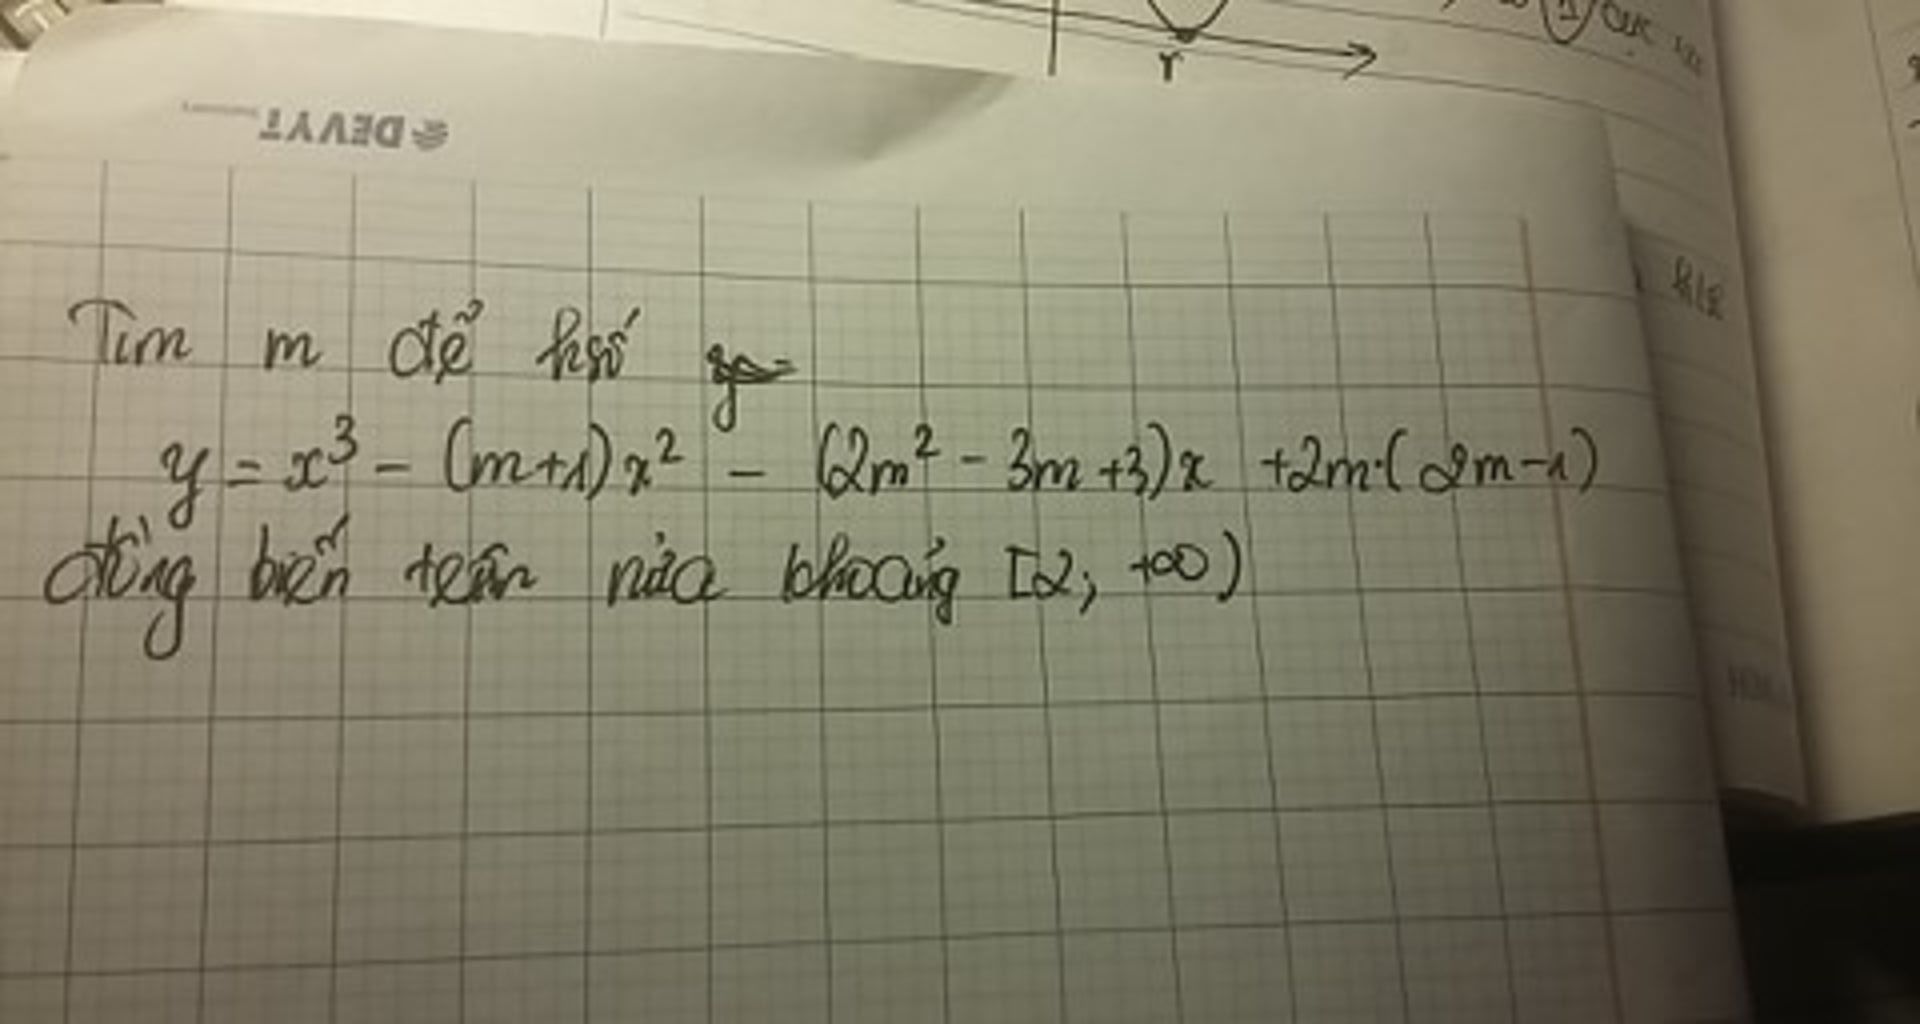 r
DEVYT
Tìm m để hsố
y = x³ - (m+1)x² - (2m² - 3m + 3)x + 2m·(2m-1)
đồng biến trên nửa khoảng [2; +∞)